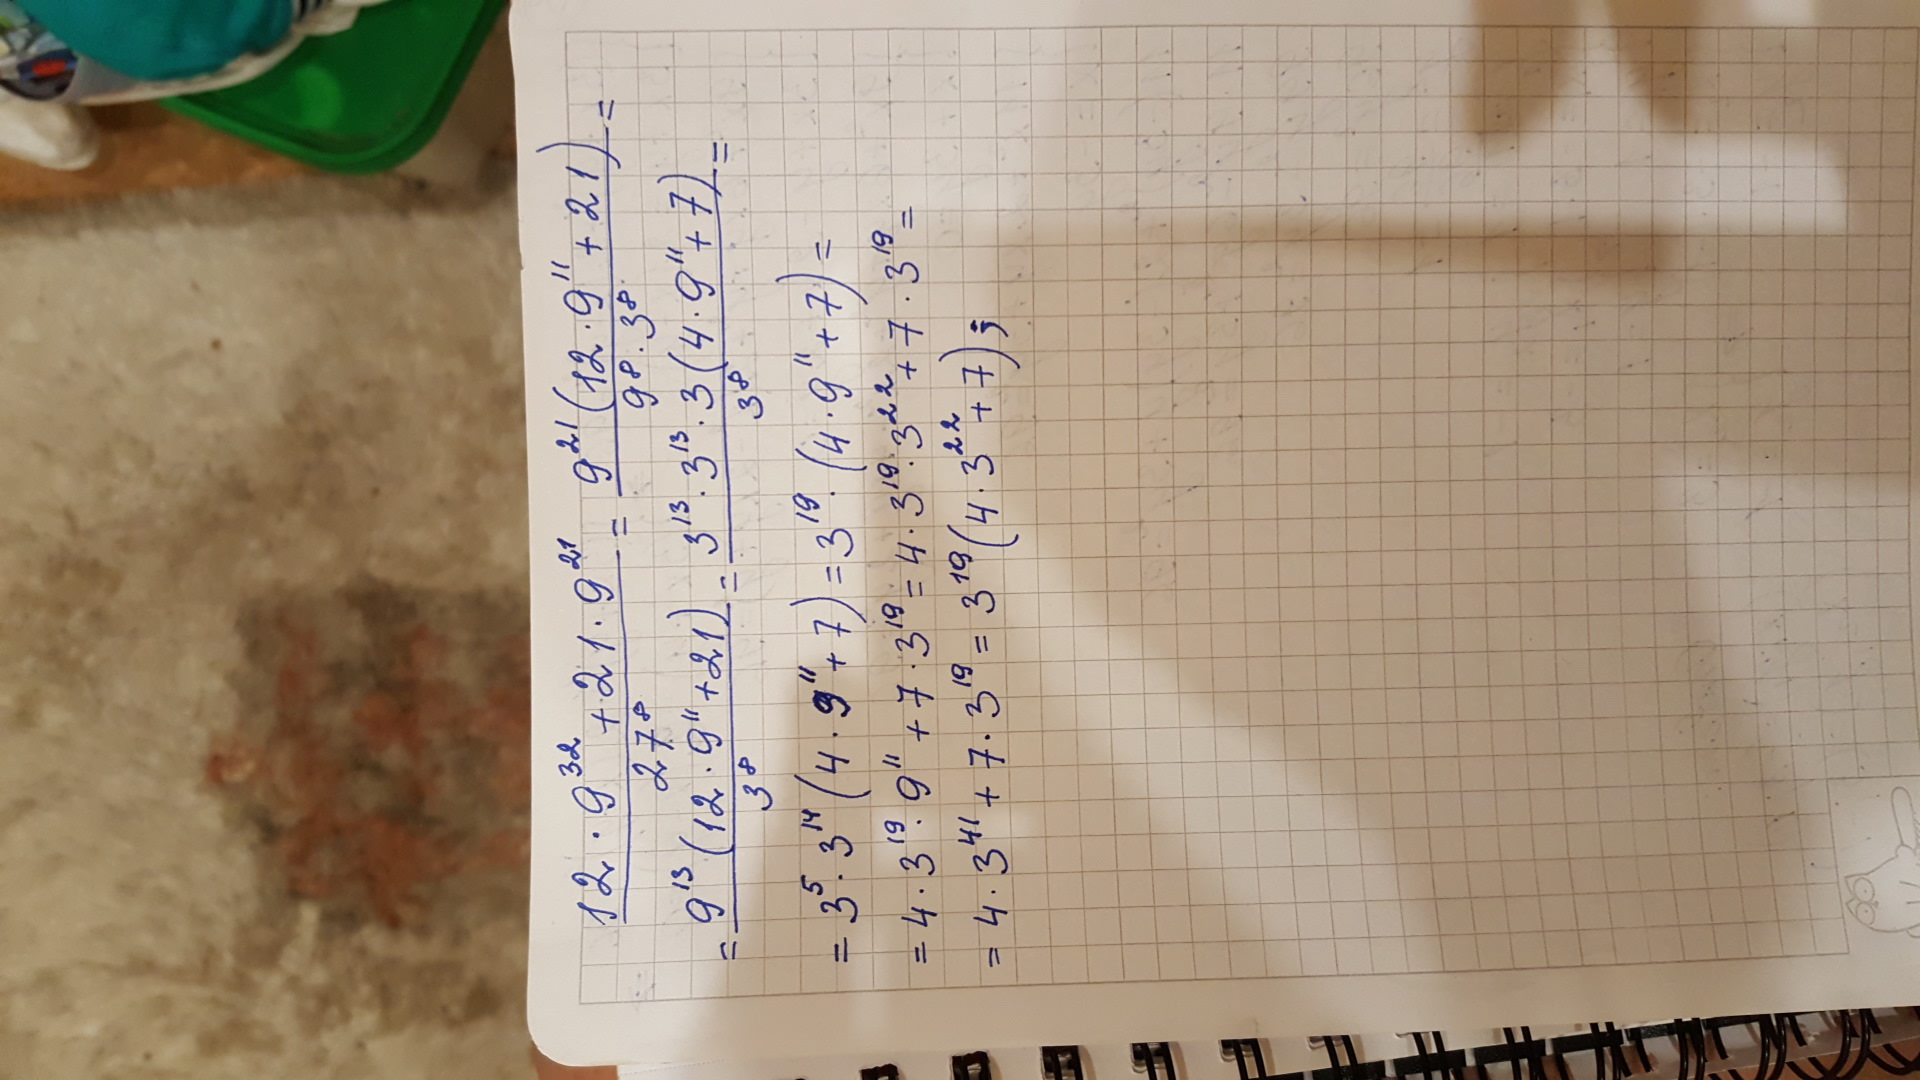 12 · 9³² + 21 · 9²¹ / 27⁸ = 9²¹(12 · 9¹¹ + 21) / 9⁸ · 3⁸ =
= 9¹³(12 · 9¹¹ + 21) / 3⁸ = 3¹³ · 3¹³ · 3(4 · 9¹¹ + 7) / 3⁸ =
= 3⁵ · 3¹⁴(4 · 9¹¹ + 7) = 3¹⁹ · (4 · 9¹¹ + 7) =
= 4 · 3¹⁹ · 9¹¹ + 7 · 3¹⁹ = 4 · 3¹⁹ · 3²² + 7 · 3¹⁹ =
= 4 · 3⁴¹ + 7 · 3¹⁹ = 3¹⁹(4 · 3²² + 7);